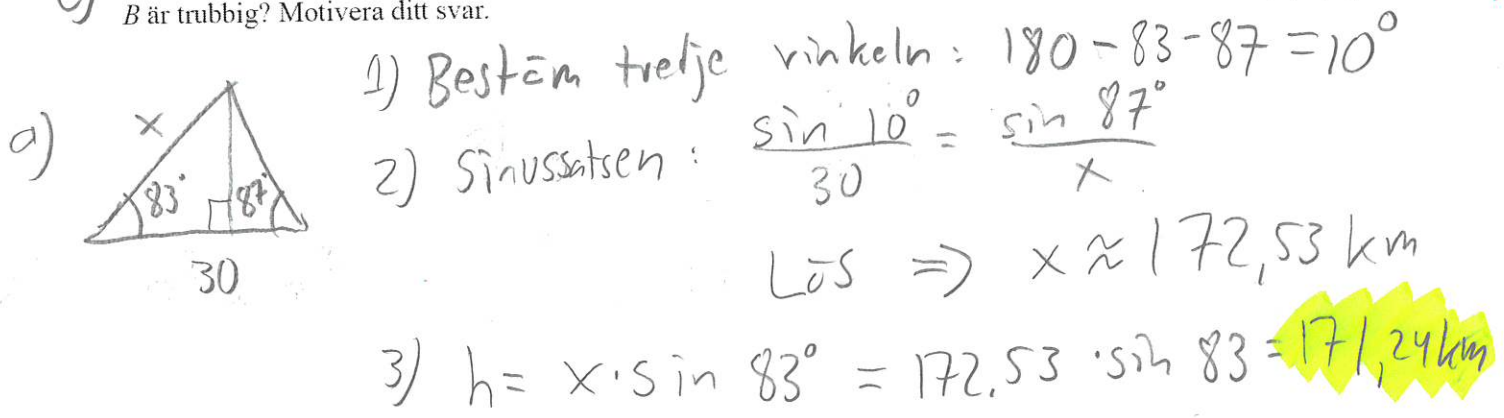 B är trubbig? Motivera ditt svar.
1) Bestäm tredje vinkeln: 180 - 83 - 87 = 10°
a)
x
83° 87°
30
2) Sinussatsen: sin 10° / 30 = sin 87° / x
Lös ⇒ x ≈ 172,53 km
3) h = x · sin 83° = 172.53 · sin 83 = 171,24 km